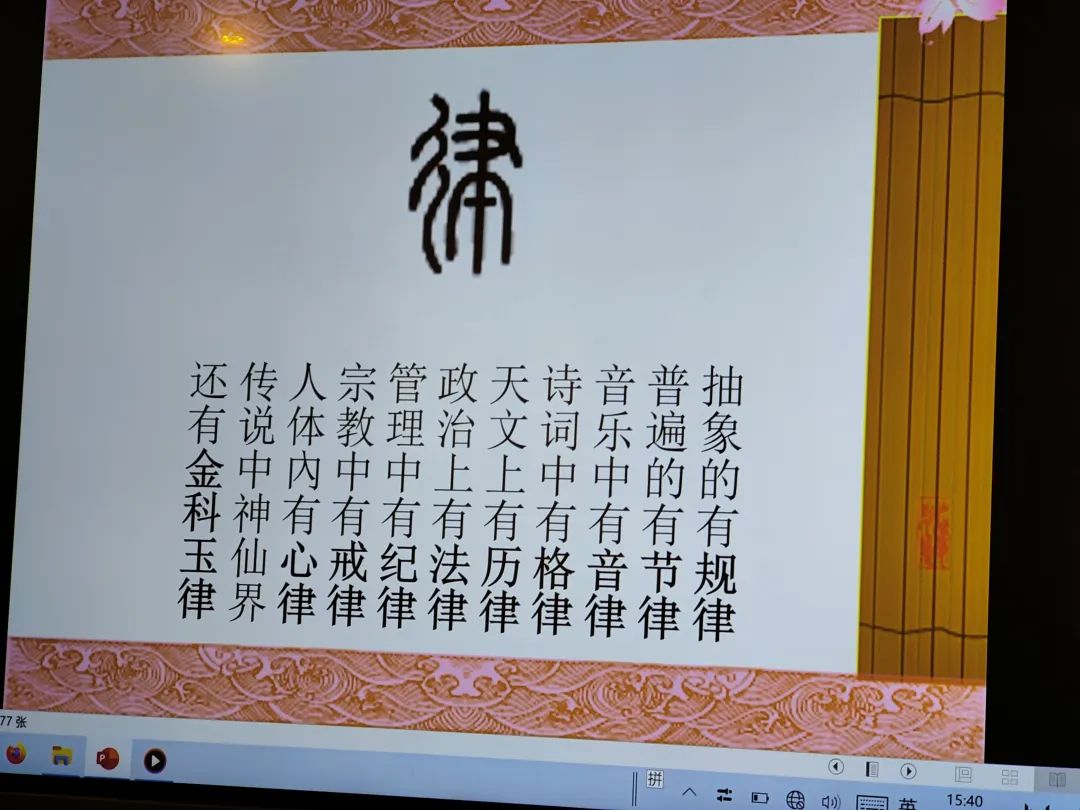 律
抽象的有规律
普遍的有节律
音乐中有音律
诗词中有格律
天文上有历律
政治上有法律
管理中有纪律
宗教中有戒律
人体內有心律
传说中神仙界
还有金科玉律
77 张
拼
英
15:40